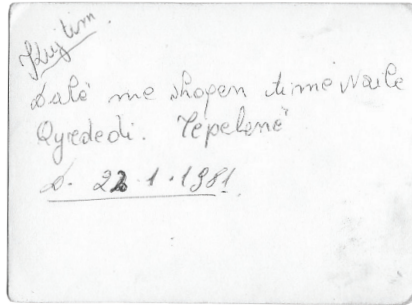 Kujtim.
Dalë me shoqen time Naile
Qyrdedi. Tepelenë
D. 22.1.1981.